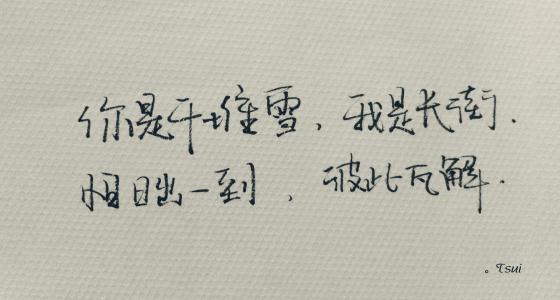 你是千堆雪，我是长街.
怕日出一到，彼此瓦解.
。Tsui